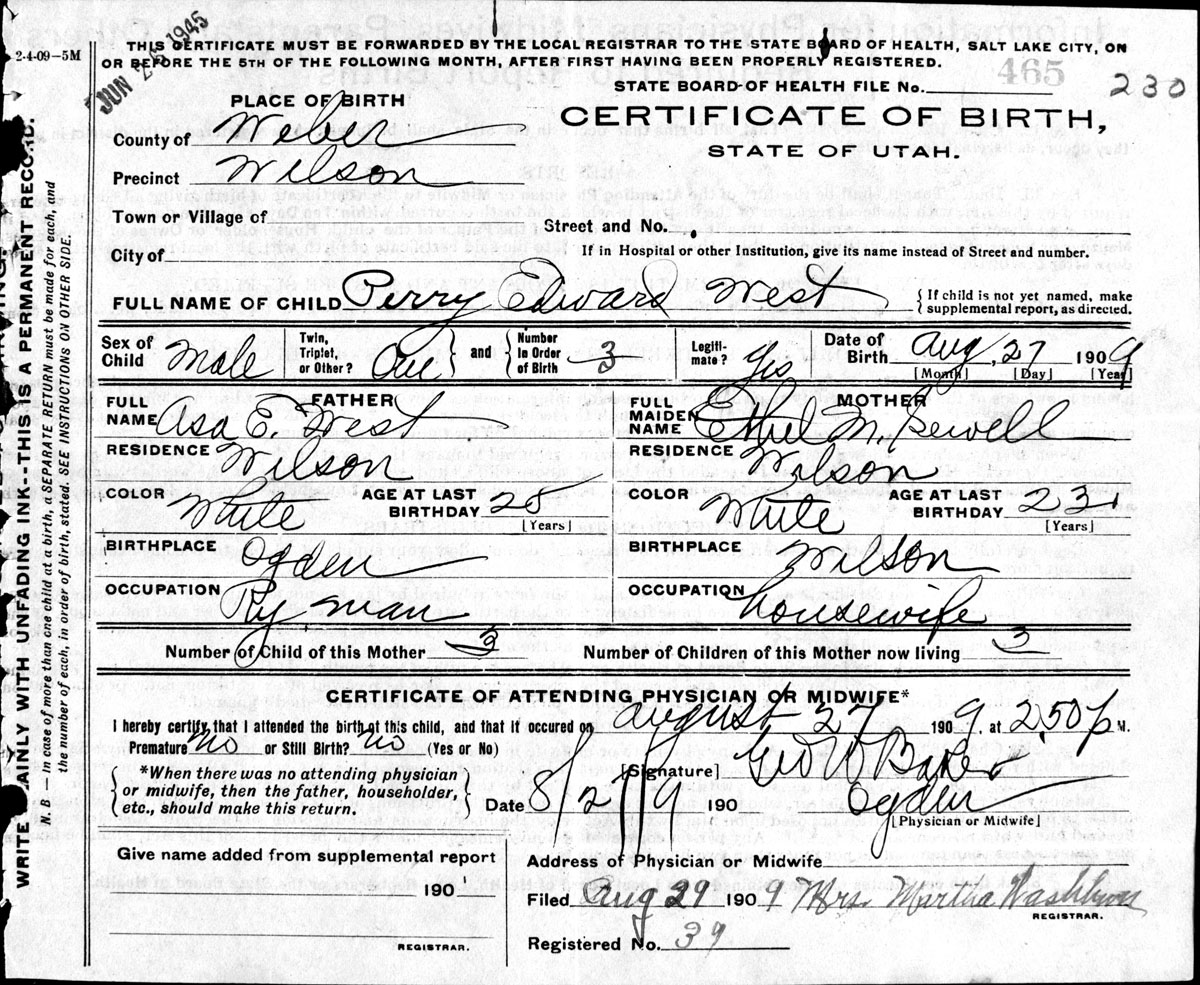 2-4-09-5M
JUN 25 1945
THIS CERTIFICATE MUST BE FORWARDED BY THE LOCAL REGISTRAR TO THE STATE BOARD OF HEALTH, SALT LAKE CITY, ON
OR BEFORE THE 5TH OF THE FOLLOWING MONTH, AFTER FIRST HAVING BEEN PROPERLY REGISTERED.
465
STATE BOARD OF HEALTH FILE No.
230
PLACE OF BIRTH
CERTIFICATE OF BIRTH,
STATE OF UTAH.
County of Weber
Precinct Wilson
Town or Village of Street and No.
City of If in Hospital or other Institution, give its name instead of Street and number.
FULL NAME OF CHILD Perry Edward West {If child is not yet named, make supplemental report, as directed.
Sex of Child Male Twin, Triplet, or Other? One } and { Number in Order of Birth 3 Legiti-mate? Yes Date of Birth Aug, 27 1909
[Month] [Day] [Year]
FATHER MOTHER
FULL NAME Asa E. West FULL MAIDEN NAME Ethel M. Sewell
RESIDENCE Wilson RESIDENCE Wilson
COLOR White AGE AT LAST BIRTHDAY 28 [Years] COLOR White AGE AT LAST BIRTHDAY 23 [Years]
BIRTHPLACE Ogden BIRTHPLACE Wilson
OCCUPATION Ry. man OCCUPATION housewife
Number of Child of this Mother 3 Number of Children of this Mother now living 3
CERTIFICATE OF ATTENDING PHYSICIAN OR MIDWIFE*
I hereby certify that I attended the birth of this child, and that it occured on august 27 1909, at 2,50 p M.
Premature No or Still Birth? No (Yes or No)
[Signature] Geo W Baker
*When there was no attending physician
or midwife, then the father, householder,
etc., should make this return.
Date 8/2 /9 190 Ogden
[Physician or Midwife]
Give name added from supplemental report
Address of Physician or Midwife
190
Filed Aug 29 1909 Mrs. Martha Washburn
REGISTRAR.
REGISTRAR.
Registered No. 39
WRITE PLAINLY WITH UNFADING INK--THIS IS A PERMANENT RECORD.
N. B.— In case of more than one child at a birth, a SEPARATE RETURN must be made for each, and
the number of each, in order of birth, stated. SEE INSTRUCTIONS ON OTHER SIDE.